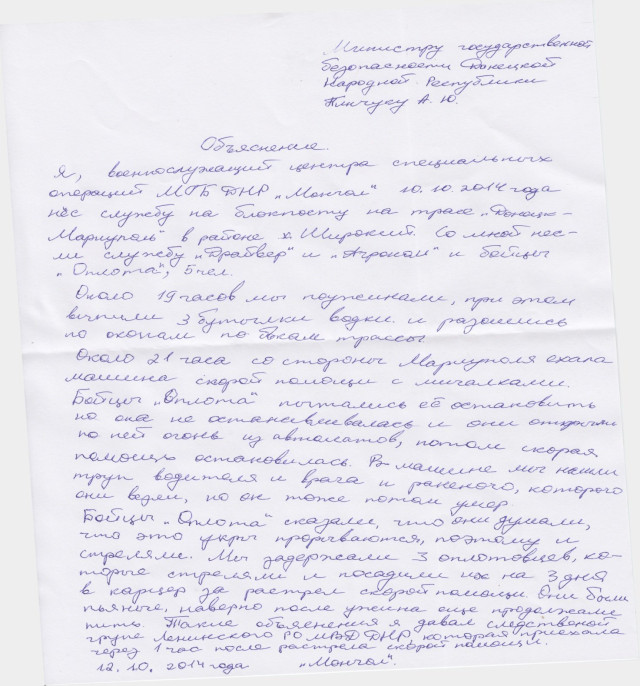 Министру государственной
безопасности Донецкой
Народной Республики
Пинчуку А. Ю.
Объяснение.
Я, военнослужащий центра специальных
операций МГБ ДНР „Монгол" 10.10.2014 года
нёс службу на блокпосту на трасе „Донецк-
Мариуполь" в районе х Широкий. Со мной нес-
ли службу „Драйвер" и „Агроном" и бойцы
„Оплота", 5 чел.
Около 19 часов мы поужинали, при этом
выпили 3 бутылки водки и разошлись
по окопам по бокам трассы.
Около 21 часа со стороны Мариуполя ехала
машина скорой помощи с мигалками.
Бойцы „Оплота" пытались её остановить
но она не останавливалась и они открыли
по ней огонь из автоматов, потом скорая
помощь остановилась. В машине мы нашли
труп водителя и врача и раненого, которого
они везли, но он тоже потом умер.
Бойцы „Оплота" сказали, что они думали,
что это укры прорываются, поэтому и
стреляли. Мы задержали 3 оплотовцев, ко-
торые стреляли и посадили их на 3 дня
в карцер за растрел скорой помощи. Они были
пьяные, наверно после ужина еще продолжали
пить. Такие объяснения я давал следственой
групе Ленинского РО МВД ДНР, которая приехала
через 1 час после растрела скорой помощи.
12.10.2014 года „Монгол".